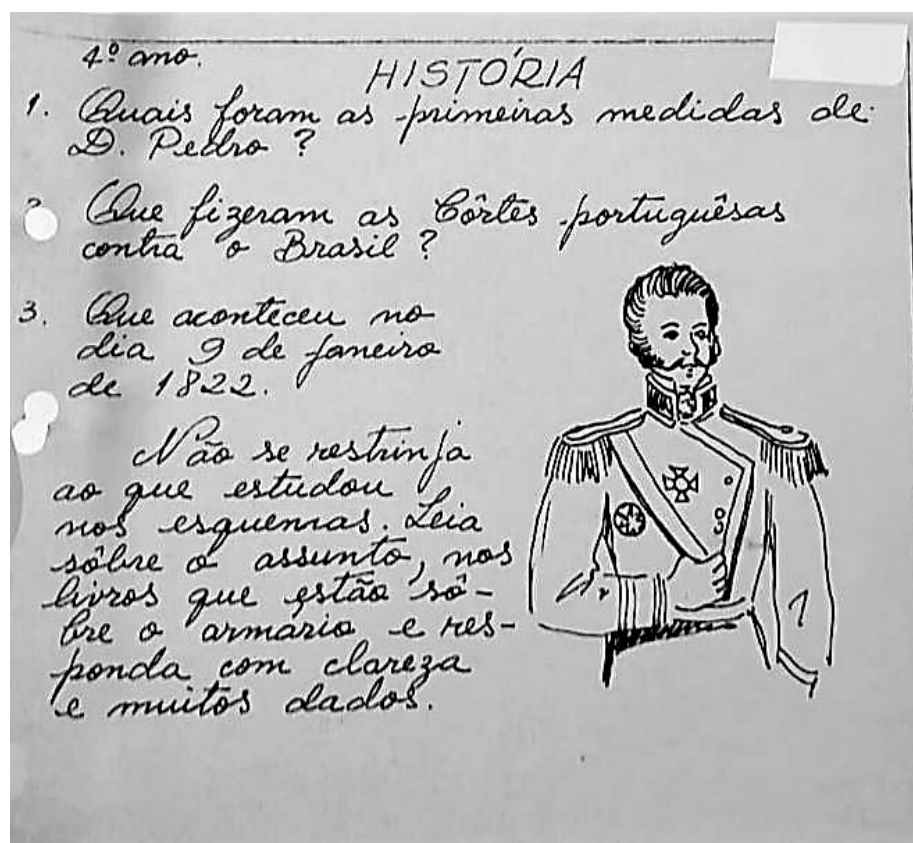 4º ano.
HISTÓRIA
1. Quais foram as primeiras medidas de
D. Pedro ?
2. Que fizeram as Côrtes portuguêsas
contra o Brasil ?
3. Que aconteceu no
dia 9 de janeiro
de 1822.
Não se restrinja
ao que estudou
nos esquemas. Leia
sôbre o assunto, nos
livros que estão sô-
bre o armário e res-
ponda com clareza
e muitos dados.